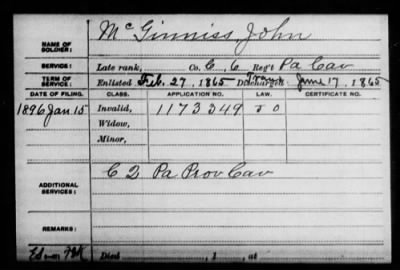 NAME OF SOLDIER: McGinniss, John
SERVICE: Late rank, Co. C, 6 Reg't Pa Cav
TERM OF SERVICE: Enlisted Feb. 27, 1865 Discharged June 17, 1865
DATE OF FILING. CLASS. APPLICATION NO. LAW. CERTIFICATE NO.
1896 Jan 15 Invalid, 1173349 J O
Widow,
Minor,
ADDITIONAL SERVICES: C 2 Pa Prov Cav
REMARKS:
Died , 1 , at